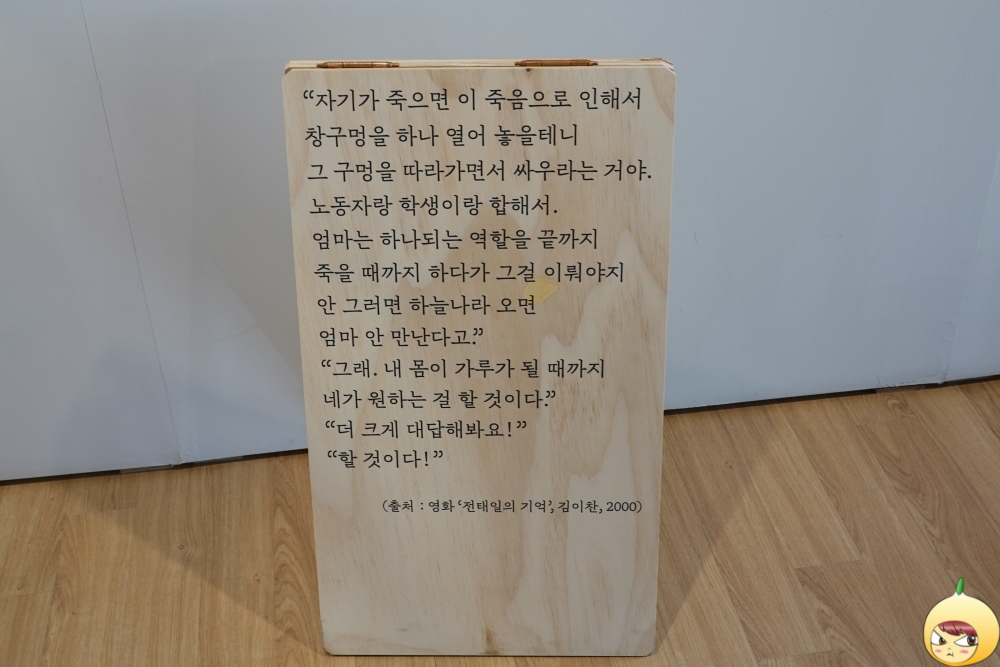 “자기가 죽으면 이 죽음으로 인해서
창구멍을 하나 열어 놓을테니
그 구멍을 따라가면서 싸우라는 거야.
노동자랑 학생이랑 합해서.
엄마는 하나되는 역할을 끝까지
죽을 때까지 하다가 그걸 이뤄야지
안 그러면 하늘나라 오면
엄마 안 만난다고.”
“그래. 내 몸이 가루가 될 때까지
네가 원하는 걸 할 것이다.”
“더 크게 대답해봐요!”
“할 것이다!”
(출처 : 영화 ‘전태일의 기억’, 김이찬, 2000)